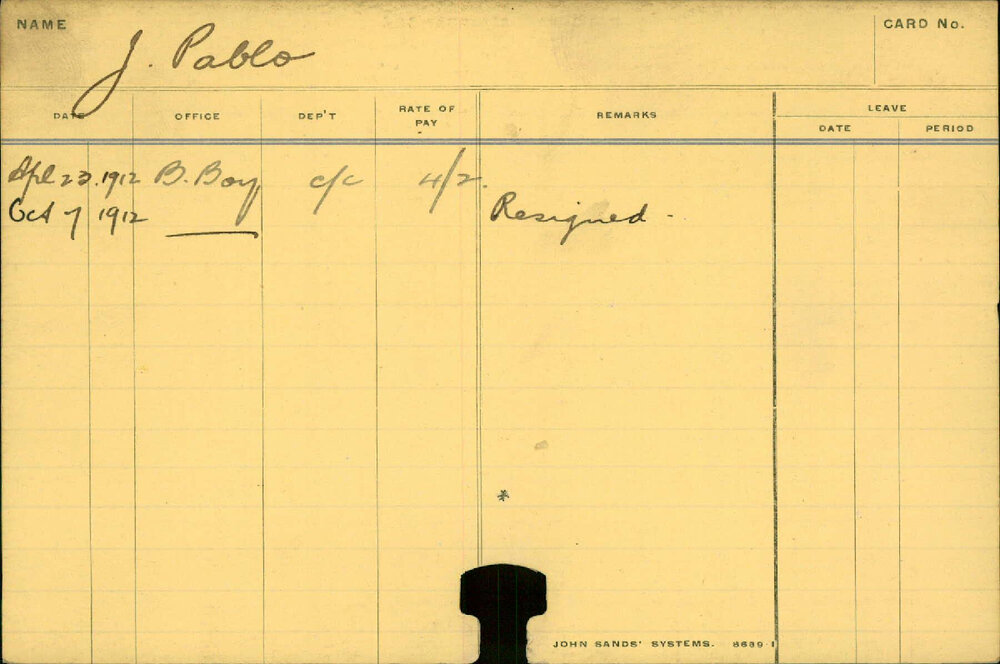 NAME
J. Pablo
CARD No.
DATE OFFICE DEP'T RATE OF PAY REMARKS LEAVE
DATE PERIOD
Apl 23. 1912 B. Boy c/c 4/2.
Oct 7 1912 Resigned -
*
JOHN SANDS' SYSTEMS. 8689 1